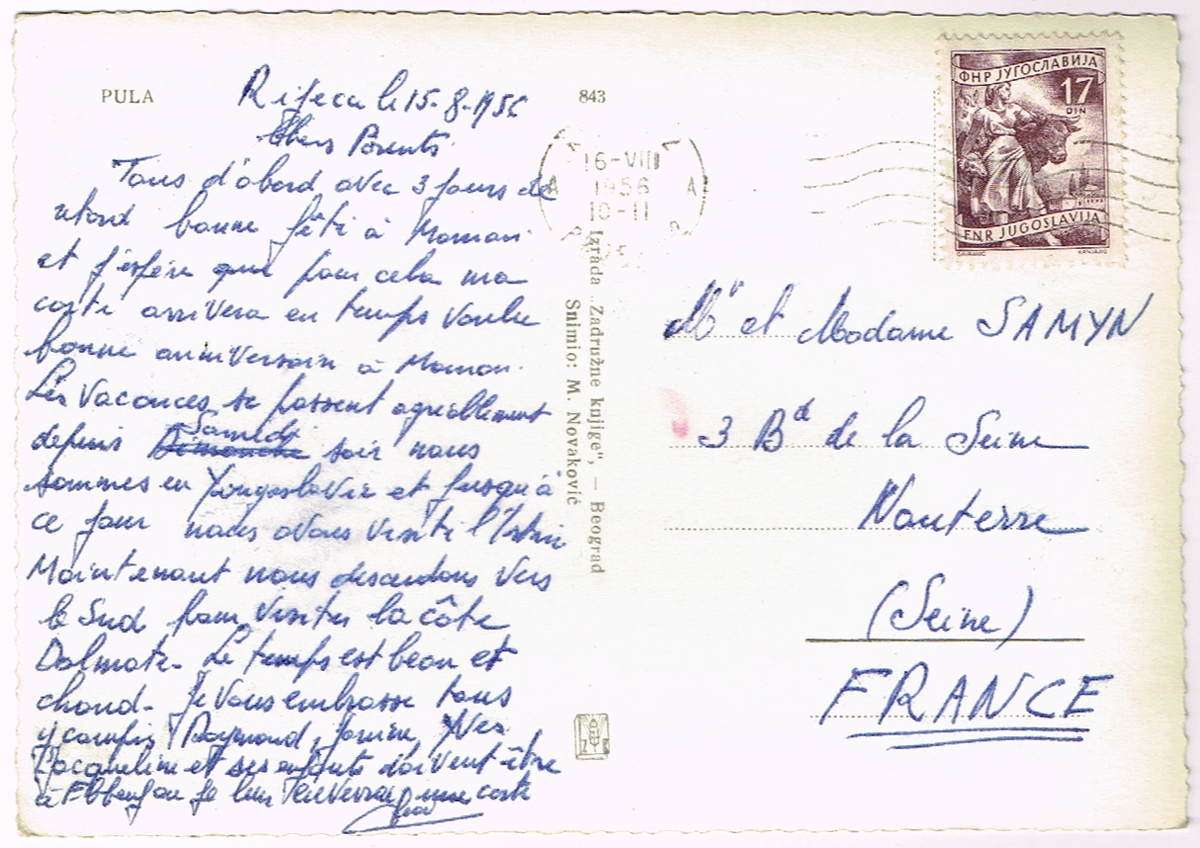 PULA
843
Rijeca le 15-8-1956
Chers Parents
Tous d'abord avec 3 jours de
retard bonne fête à Maman
et j'espère que pour cela ma
carte arrivera en temps voulu
bonne anniversaire à Maman.
Les vacances se passent agréablement
depuis Dimanche Samedi soir nous
sommes en Yougoslavie et jusqu'à
ce jour nous avons visité l'Istrie
Maintenant nous descendons vers
le Sud pour visiter la côte
Dalmate. Le temps est beau et
chaud. Je vous embrasse tous
y compris Raymond, Janine, Yves
Jacqueline et ses enfants doivent être
à je leur enverrai une carte
Izrada „Zadružne knjige", — Beograd
Snimio: M. Novaković
16-VIII
1956
10-11
A A
ФНР ЈУГОСЛАВИЈА
17
DIN
FNR JUGOSLAVIJA
Mr et Madame SAMYN
3 Bd de la Seine
Nanterre
(Seine)
FRANCE